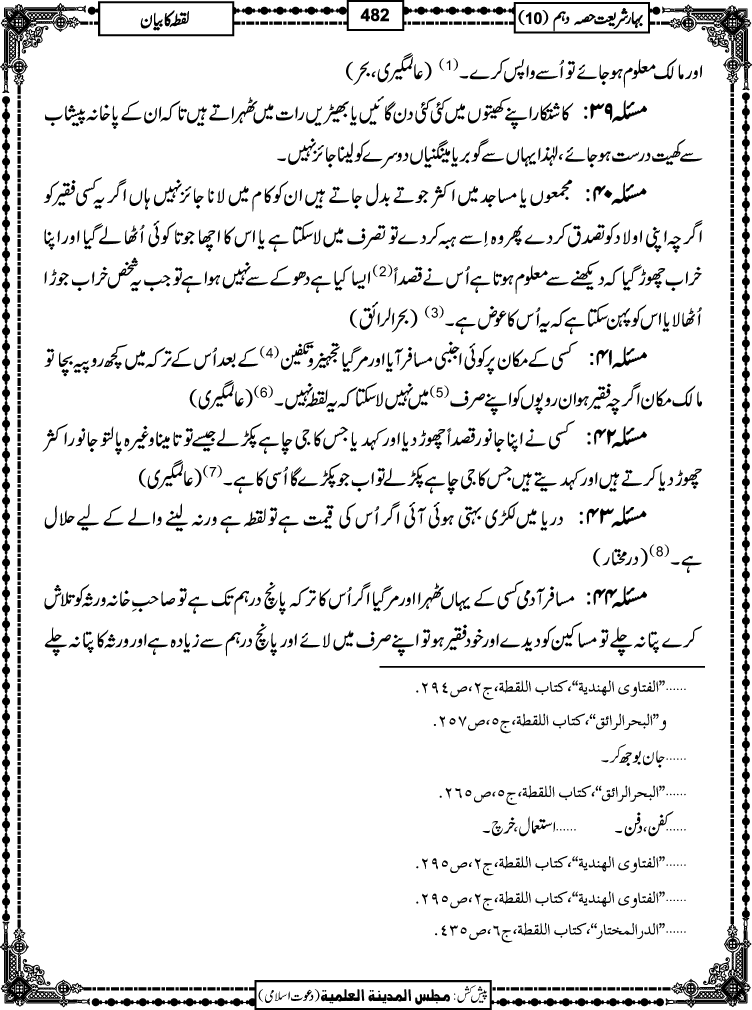 بہار شریعت حصہ دہم (10)
482
لقطہ کا بیان
اور مالک معلوم ہو جائے تو اُسے واپس کرے۔(1) (عالمگیری، بحر)
مسئلہ ۳۹: کاشتکار اپنے کھیتوں میں کئی کئی دن گائیں یا بھیڑیں رات میں ٹھہراتے ہیں تاکہ ان کے پاخانہ پیشاب
سے کھیت درست ہو جائے، لہٰذا یہاں سے گوبر یا مینگنیاں دوسرے کو لینا جائز نہیں۔
مسئلہ ۴۰: مجمعوں یا مساجد میں اکثر جوتے بدل جاتے ہیں ان کو کام میں لانا جائز نہیں ہاں اگر یہ کسی فقیر کو
اگرچہ اپنی اولاد کو تصدق کر دے پھر وہ اِسے ہبہ کر دے تو تصرف میں لاسکتا ہے یا اس کا اچھا جوتا کوئی اُٹھا لے گیا اور اپنا
خراب چھوڑ گیا کہ دیکھنے سے معلوم ہوتا ہے اُس نے قصداً(2) ایسا کیا ہے دھوکے سے نہیں ہوا ہے تو جب یہ شخص خراب جوڑا
اُٹھا لایا اس کو پہن سکتا ہے کہ یہ اُس کا عوض ہے۔(3) (بحرالرائق)
مسئلہ ۴۱: کسی کے مکان پر کوئی اجنبی مسافر آیا اور مر گیا تجہیز و تکفین(4) کے بعد اُس کے ترکہ میں کچھ روپیہ بچا تو
مالک مکان اگرچہ فقیر ہو ان روپوں کو اپنے صرف(5) میں نہیں لاسکتا کہ یہ لقطہ نہیں۔(6) (عالمگیری)
مسئلہ ۴۲: کسی نے اپنا جانور قصداً چھوڑ دیا اور کہدیا جس کا جی چاہے پکڑ لے جیسے تو تا مینا وغیرہ پالتو جانور اکثر
چھوڑ دیا کرتے ہیں اور کہد یتے ہیں جس کا جی چاہے پکڑ لے تو اب جو پکڑے گا اُسی کا ہے۔(7) (عالمگیری)
مسئلہ ۴۳: دریا میں لکڑی بہتی ہوئی آئی اگر اُس کی قیمت ہے تو لقطہ ہے ورنہ لینے والے کے لیے حلال
ہے۔(8) (درمختار)
مسئلہ ۴۴: مسافر آدمی کسی کے یہاں ٹھہرا اور مر گیا اگر اُس کا ترکہ پانچ درہم تک ہے تو صاحبِ خانہ ورثہ کو تلاش
کرے پتا نہ چلے تو مساکین کو دیدے اور خود فقیر ہو تو اپنے صرف میں لائے اور پانچ درہم سے زیادہ ہے اور ورثہ کا پتا نہ چلے
......”الفتاوی الهندیة“، کتاب اللقطة، ج۲، ص۲۹٤.
و ”البحر الرائق“، کتاب اللقطة، ج٥، ص۲٥۷.
......جان بوجھ کر۔
......”البحر الرائق“، کتاب اللقطة، ج٥، ص۲٦٥.
......کفن، دفن۔ ......استعمال، خرچ۔
......”الفتاوی الهندیة“، کتاب اللقطة، ج۲، ص۲۹٥.
......”الفتاوی الهندیة“، کتاب اللقطة، ج۲، ص۲۹٥.
......”الدر المختار“، کتاب اللقطة، ج٦، ص٤۳٥.
پیش کش: مجلس المدینة العلمیة (دعوت اسلامی)